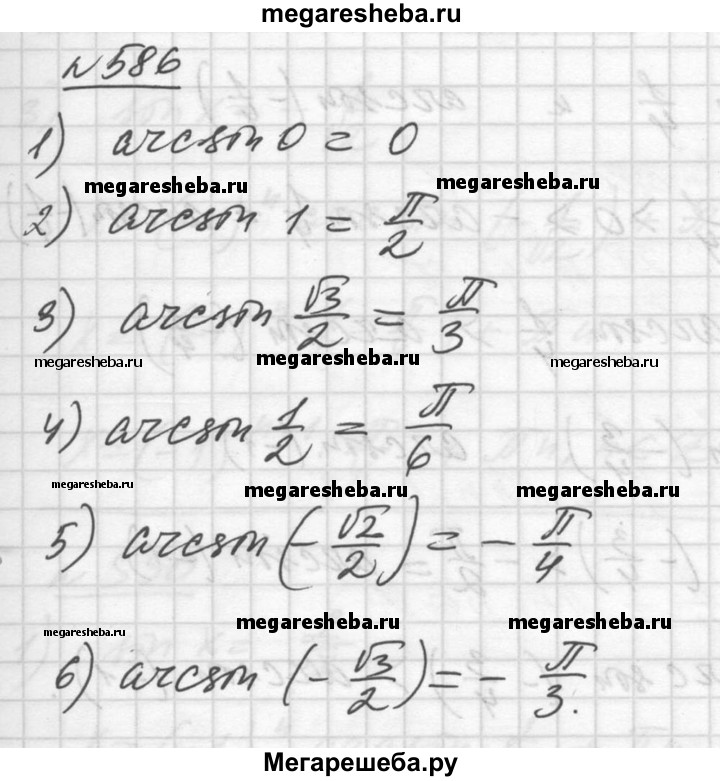 megaresheba.ru
№586
1) arcsin 0 = 0
megaresheba.ru megaresheba.ru
2) arcsin 1 = π/2
3) arcsin √3/2 = π/3
megaresheba.ru megaresheba.ru megaresheba.ru
4) arcsin 1/2 = π/6
megaresheba.ru megaresheba.ru megaresheba.ru
5) arcsin (-√2/2) = - π/4
megaresheba.ru megaresheba.ru megaresheba.ru
6) arcsin (-√3/2) = - π/3.
Мегарешеба.ру